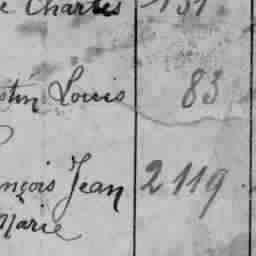 e Charles 131
stin Louis 83
nçois Jean 2119.
Marie